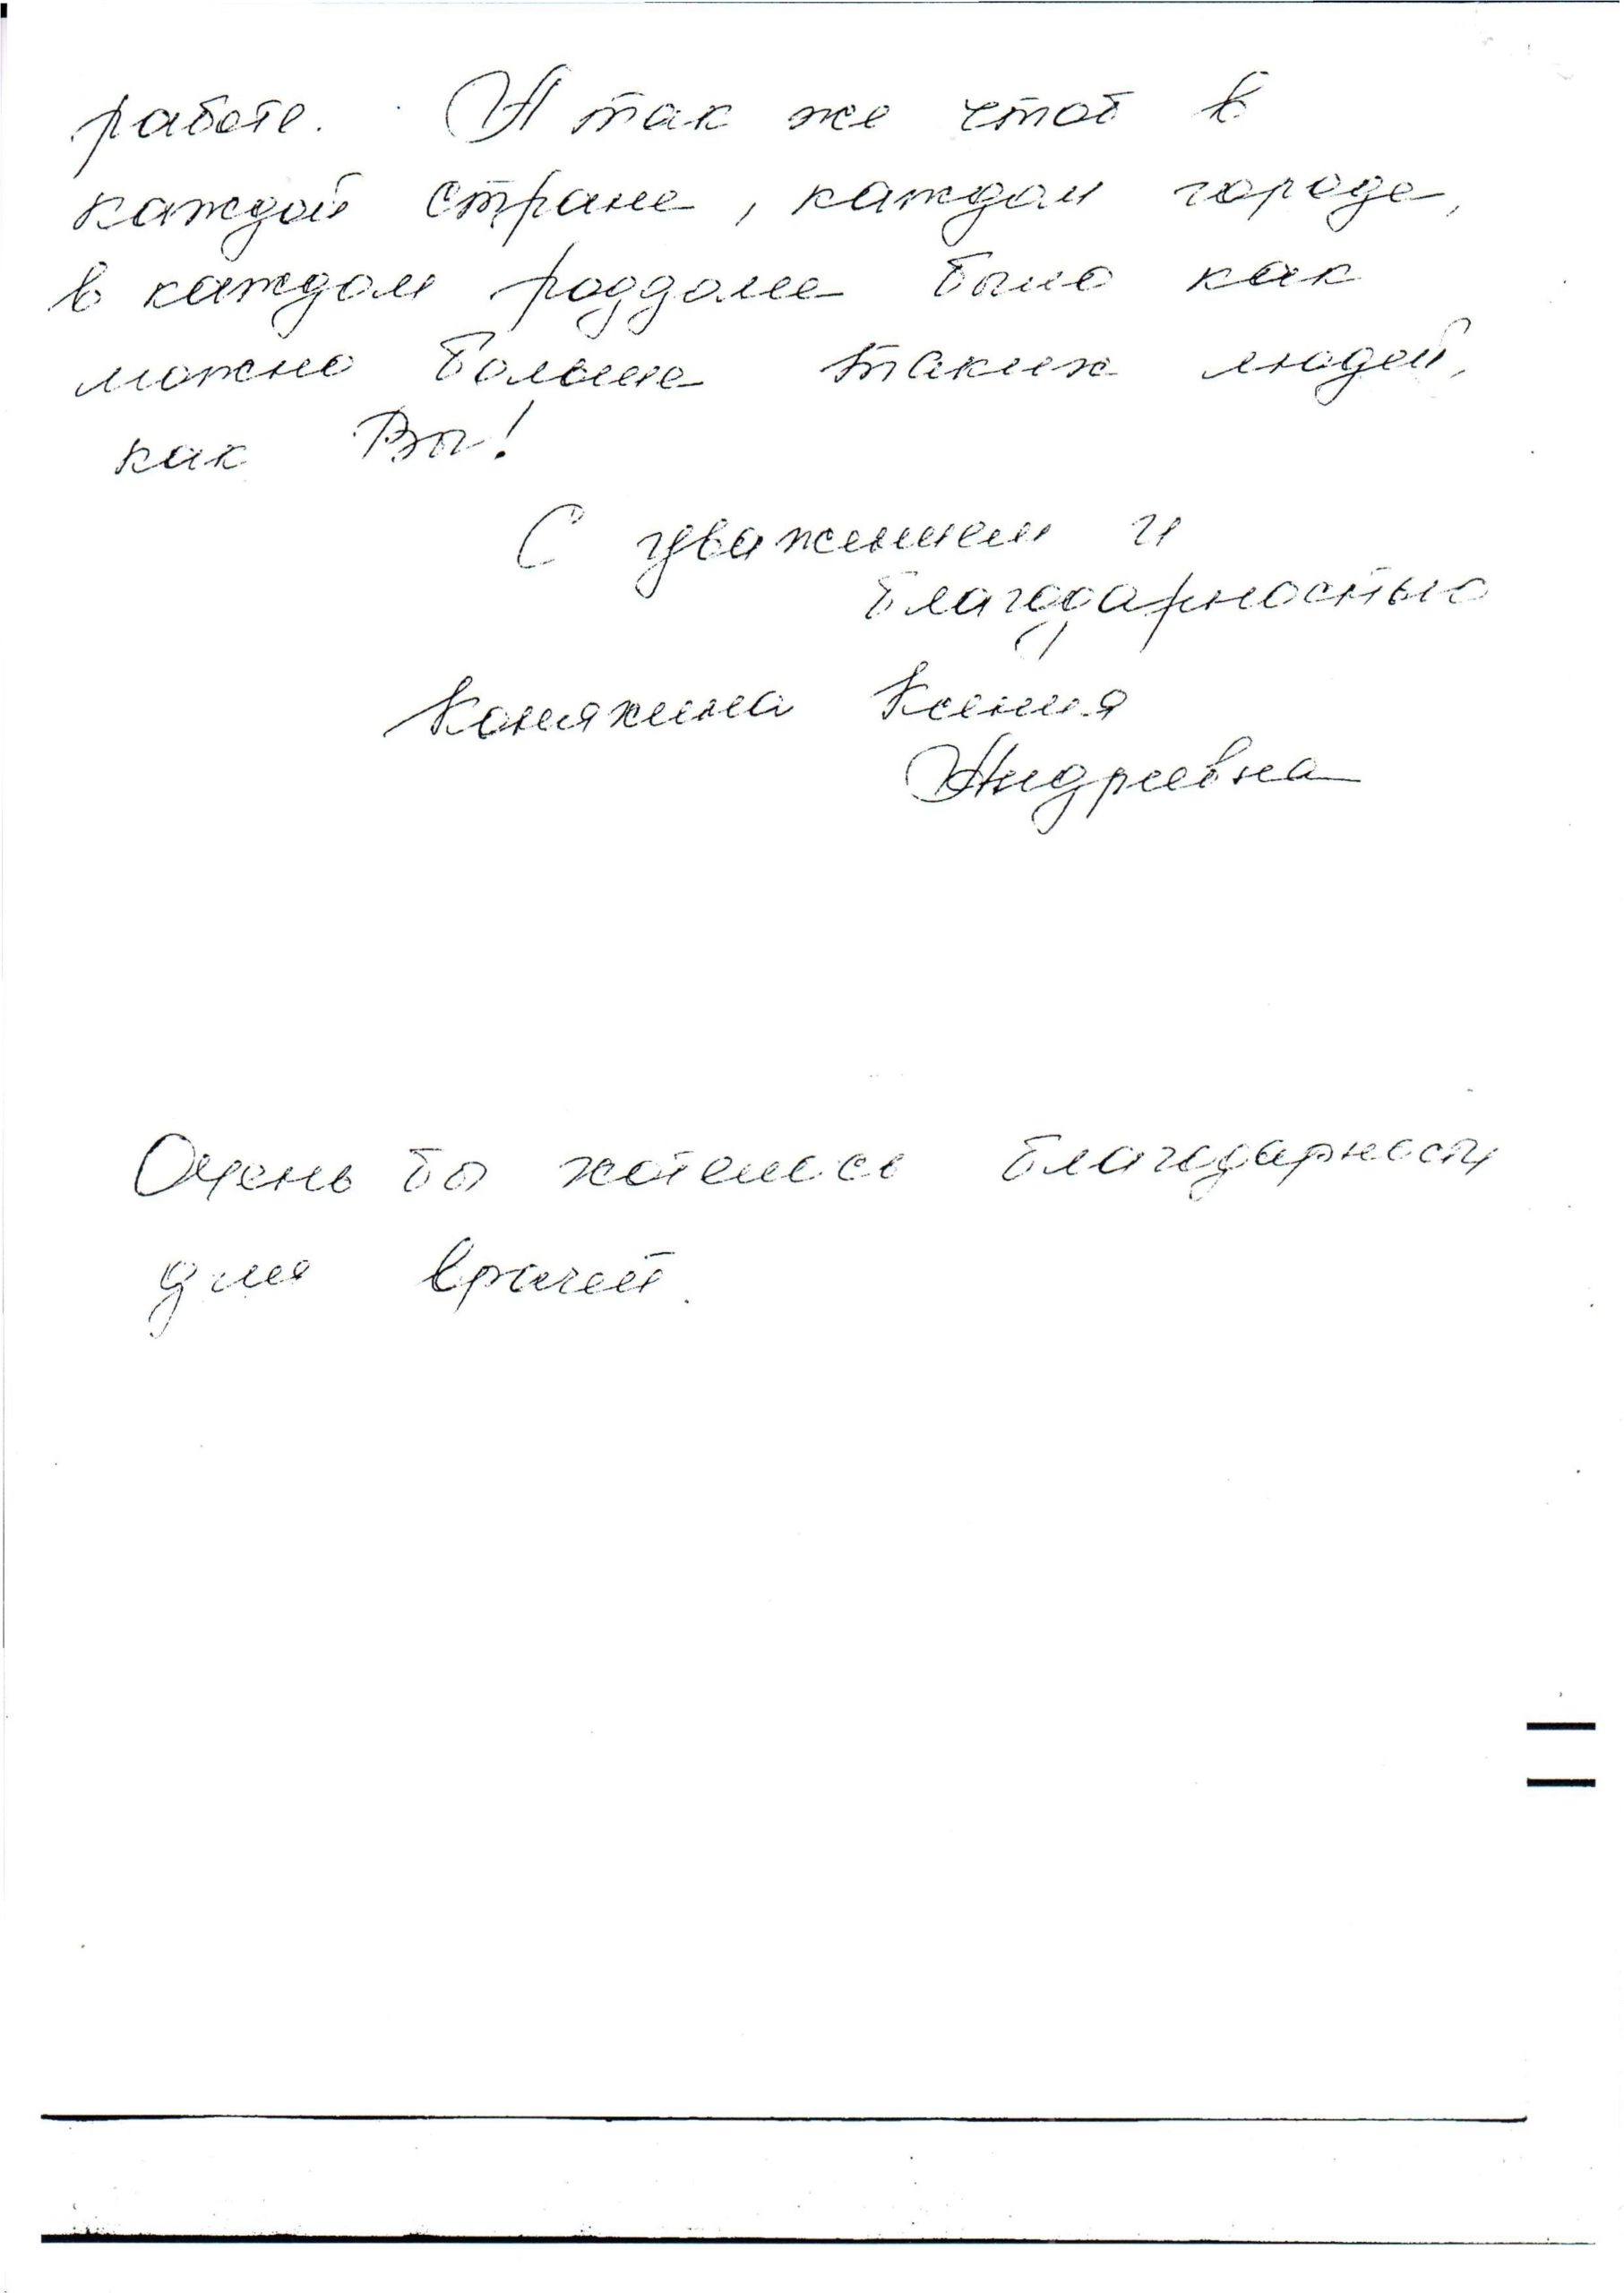 работе. А так же чтоб в
каждой стране, каждом городе,
в каждом роддоме было как
можно больше таких людей,
как Вы!
С уважением и
благодарностью
Конякина Ксения
Андреевна
Очень бы хотелось благодарности
для врачей.